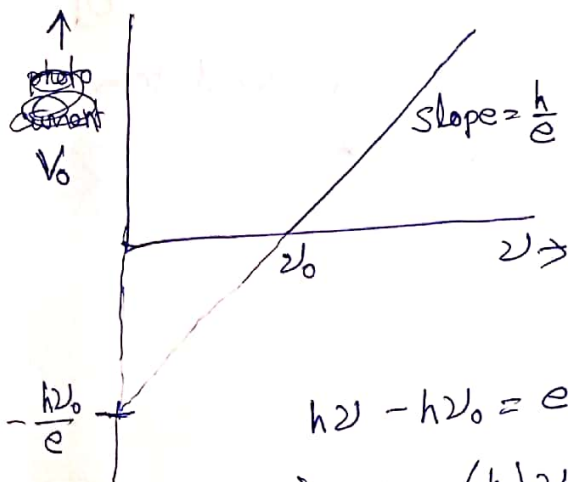 ↑
photo
current
V₀
slope = h/e
ν₀
ν →
- hν₀/e
hν - hν₀ = e
(h)ν